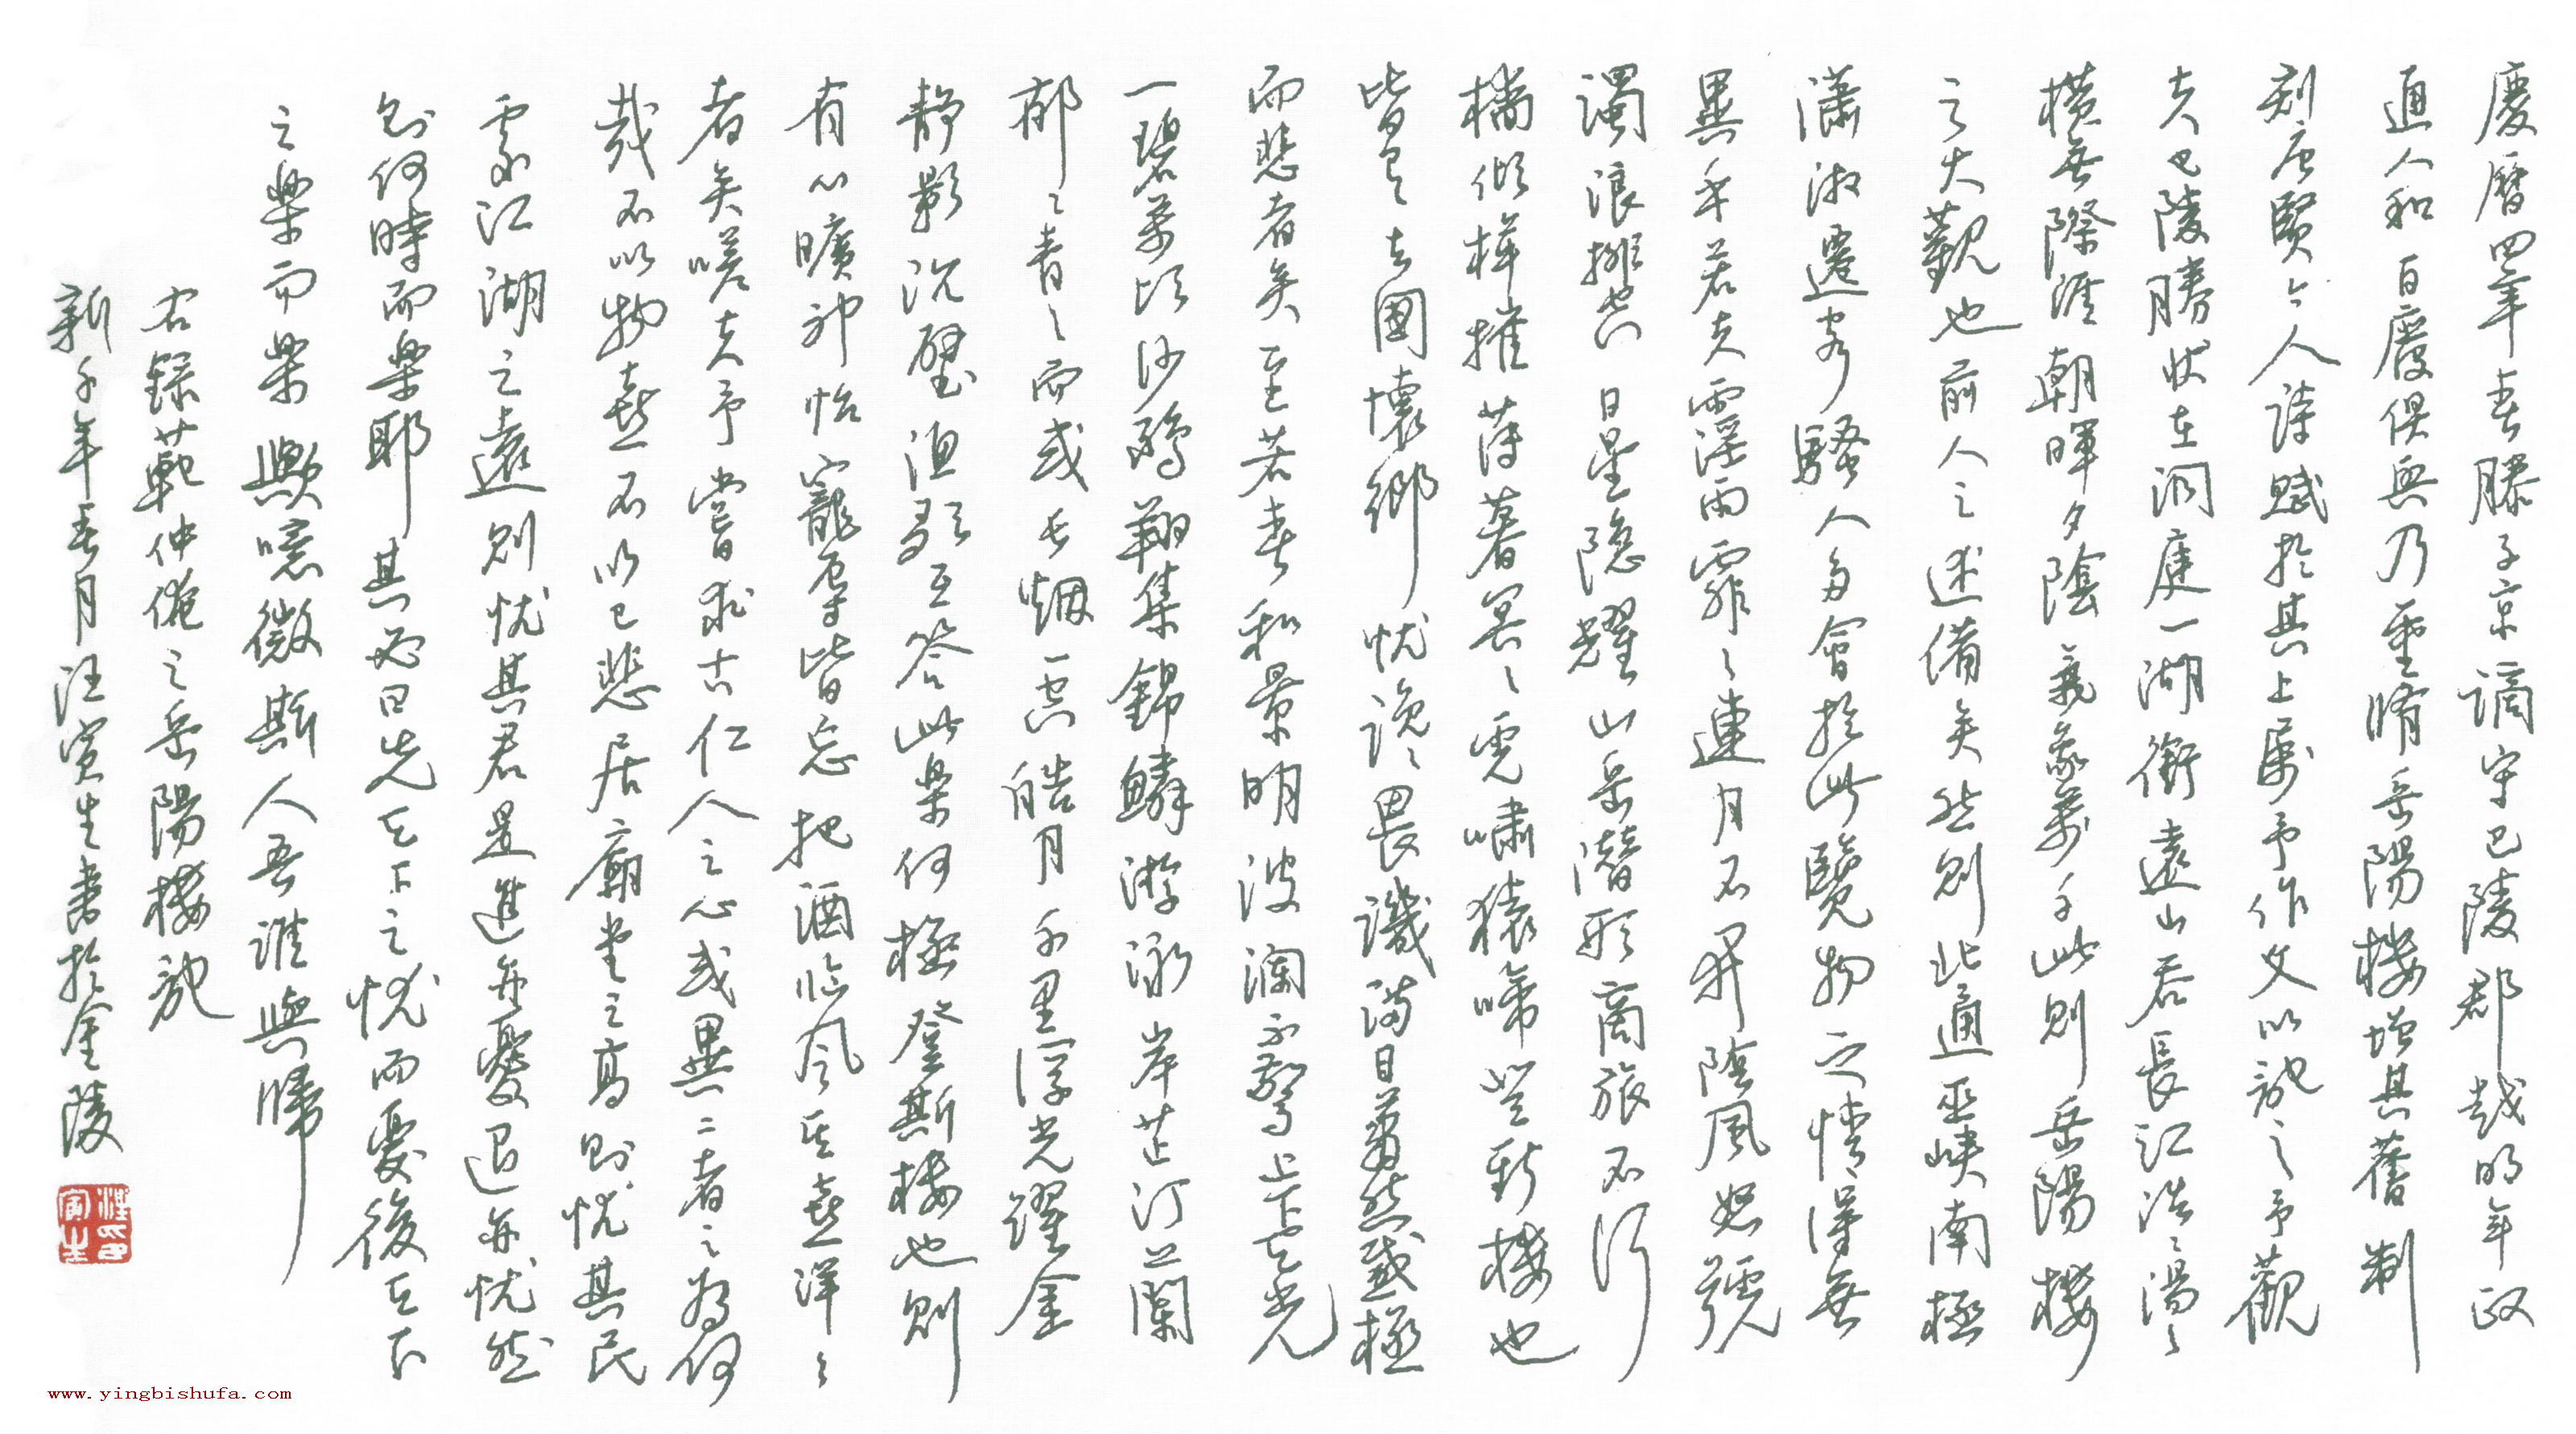 慶曆四年春滕子京謫守巴陵郡越明年政
通人和百廢俱興乃重脩岳陽樓增其舊制
刻唐賢今人詩賦於其上屬予作文以記之予觀
夫巴陵勝狀在洞庭一湖銜遠山吞長江浩〻湯〻
橫無際涯朝暉夕陰氣象萬千此則岳陽樓
之大觀也前人之述備矣然則北通巫峽南極
瀟湘遷客騷人多會於此覽物之情得無
異乎若夫霪雨霏〻連月不開陰風怒號
濁浪排空日星隱耀山岳潛形商旅不行
檣傾楫摧薄暮冥〻虎嘯猿啼登斯樓也
皆有去國懷鄉忧讒畏譏滿目蕭然感極
而悲者矣至若春和景明波瀾不驚上下天光
一碧萬頃沙鷗翔集錦鱗游泳岸芷汀蘭
郁〻青〻而或長烟一空皓月千里浮光躍金
静影沉璧漁歌互答此樂何極登斯樓也則
有心曠神怡寵辱皆忘把酒臨風其喜洋〻
者矣嗟夫予嘗求古仁人之心或異二者之為何
哉不以物喜不以己悲居廟堂之高則忧其民
處江湖之遠則忧其君是進亦憂退亦忧然
則何時而樂耶其必曰先天下之忧而憂後天下
之樂而樂歟噫微斯人吾誰與歸
右録範仲淹之岳陽樓記
新千年春月汪寅生書於金陵
汪寅生印
www.yingbishufa.com